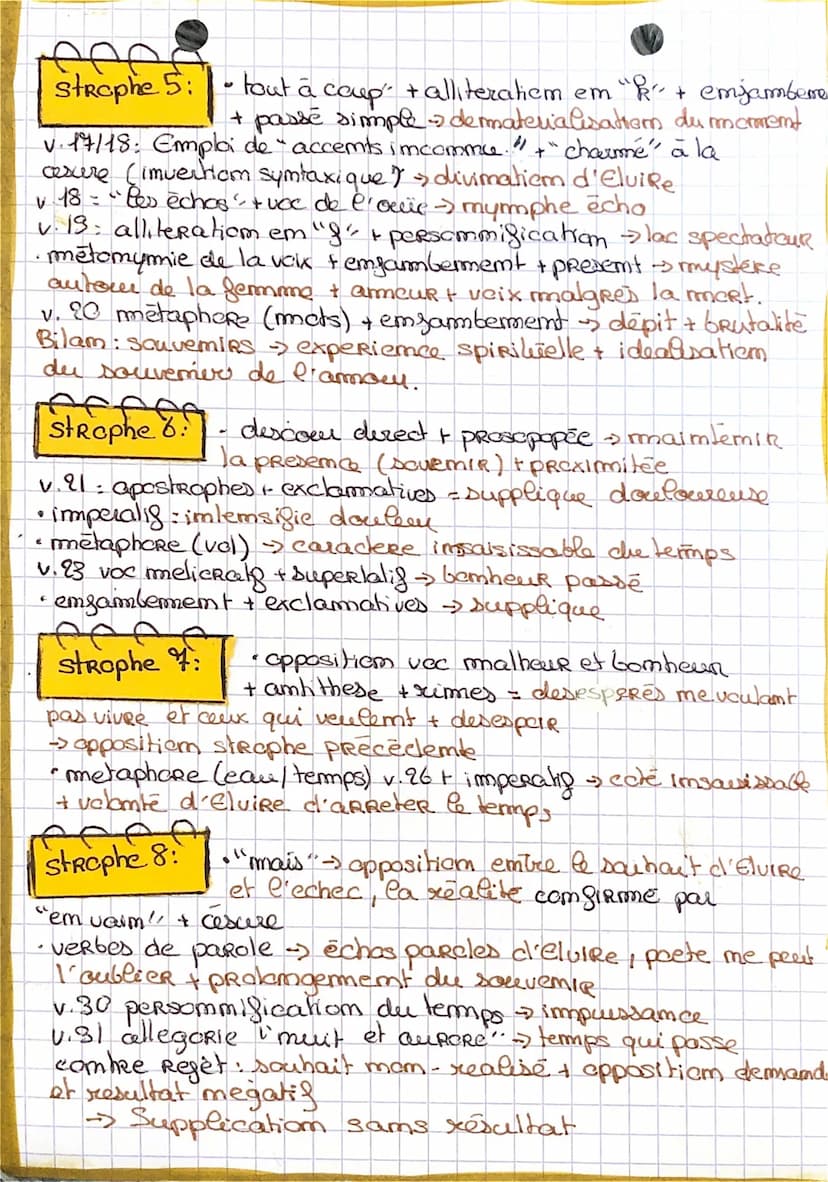 Strophe 5: • tout à coup" + alliteration en "R" + enjambeme
+ passé simple → dematerialisation du moment
v.17/18: Emploi de "accents inconnu." + "charmé" à la
cesure (invertion syntaxique) → divination d'Elvire
v 18 = "les échos" + voc de l'ouïe → nymphe écho
v. 19: alliteration en "f" + personnification → lac spectateur
• métonymie de la voix + enjambement + present → mystére
autour de la femme + amour + voix malgrés la mort.
v. 20 métaphore (mots) + enjambement → dépit + brutalité
Bilan: souvenirs → experience spirituelle + idealisation
du souvenir de l'amour.
Strophe 6: - discour direct + prosopopée → maintenir
la presence (souvenir) + proximitée
v.21 = apostrophes + exclamatives = supplique douloureuse
• imperatif: intensifie douleur
• métaphore (vol) → caractere insaisissable du temps
v.23 voc melioratif + superlatif → bonheur passé
• enjambement + exclamatives → supplique
Strophe 7: • opposition voc malheur et bonheur
+ antithese + rimes = desesperés ne voulant
pas vivre et ceux qui veulent + desespoir
→ opposition strophe précédente
• metaphore (eau/temps) v.26 + imperatif → coté insaisissable
+ volonté d'Elvire d'arreter le temps
Strophe 8: • "mais" → opposition entre le souhait d'Elvire
et l'echec, la réalité confirmé par
"en vain" + césure
• verbes de parole → échos paroles d'elvire, poete ne peut
l'oublier + prolongement du souvenir
v.30 personnification du temps → impuissance
v.31 allegorie "nuit et aurore" → temps qui passe
contre rejet: souhait non-realisé + opposition demand
et resultat negatif
→ Supplication sans résultat